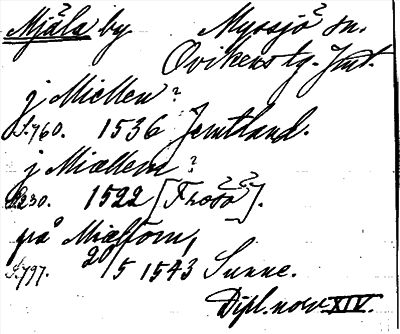 Mjäla by Myssjö sn.
Ovikens tg. Jmt.
j Miellen?
S.760. 1536 Jemtland.
j Miællem?
S.230. 1522 [Frösö].
på Miælſom,
S.797. 20/5 1543 Sunne.
Dipl. norv. XIV.